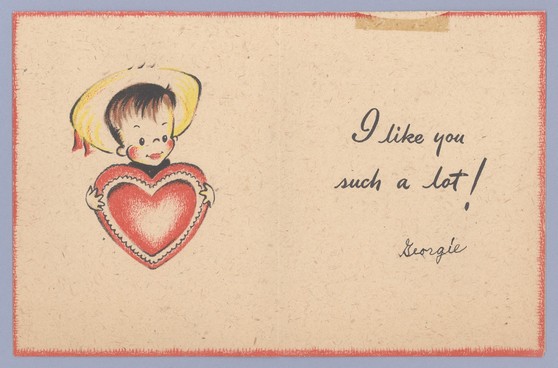 I like you
such a lot!
Georgie